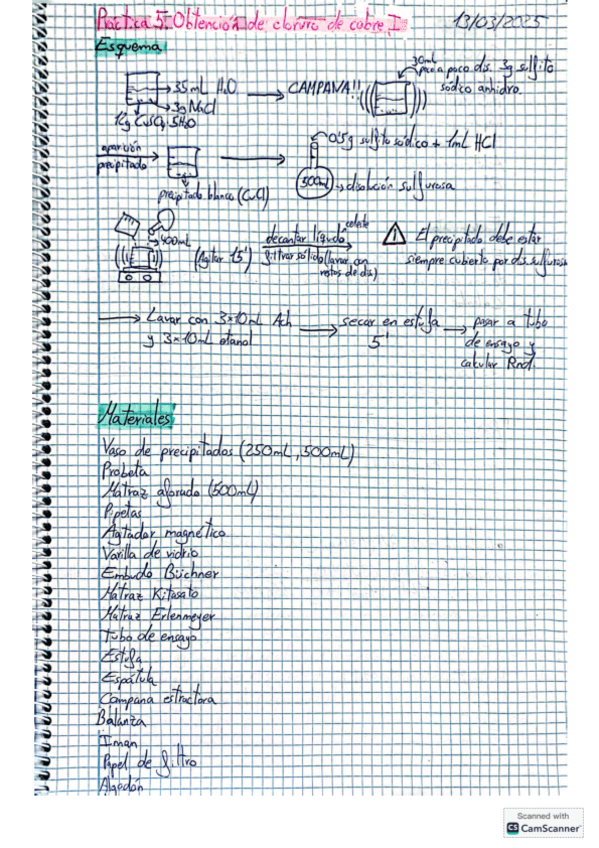 Práctica 5. Obtención de cloruro de cobre I 13/03/2025
Esquema
35 mL H2O
3g NaCl
CuSO4·5H2O
CAMPANA!!
30mL
poco a poco dis. 3g sulfito
sódico anhidro.
aparición
precipitado
precipitado blanco (CuCl)
0'5g sulfito sódico + 1mL HCl
500mL
disolución sulfurosa
400mL
(Agitar 15')
decantar líquido celeste
filtrar sólido (lavar con
restos de dis)
El precipitado debe estar
siempre cubierto por dis. sulfurosa
Lavar con 3×10mL Ach
y 3×10mL etanol
secar en estufa
5'
pasar a tubo
de ensayo y
calcular Rnd.
Materiales
Vaso de precipitados (250mL, 500mL)
Probeta
Matraz aforado (500mL)
Pipetas
Agitador magnético
Varilla de vidrio
Embudo Büchner
Matraz Kitasato
Matraz Erlenmeyer
Tubo de ensayo
Estufa
Espátula
Campana extractora
Balanza
Iman
Papel de filtro
Algodón
Scanned with
CS CamScanner